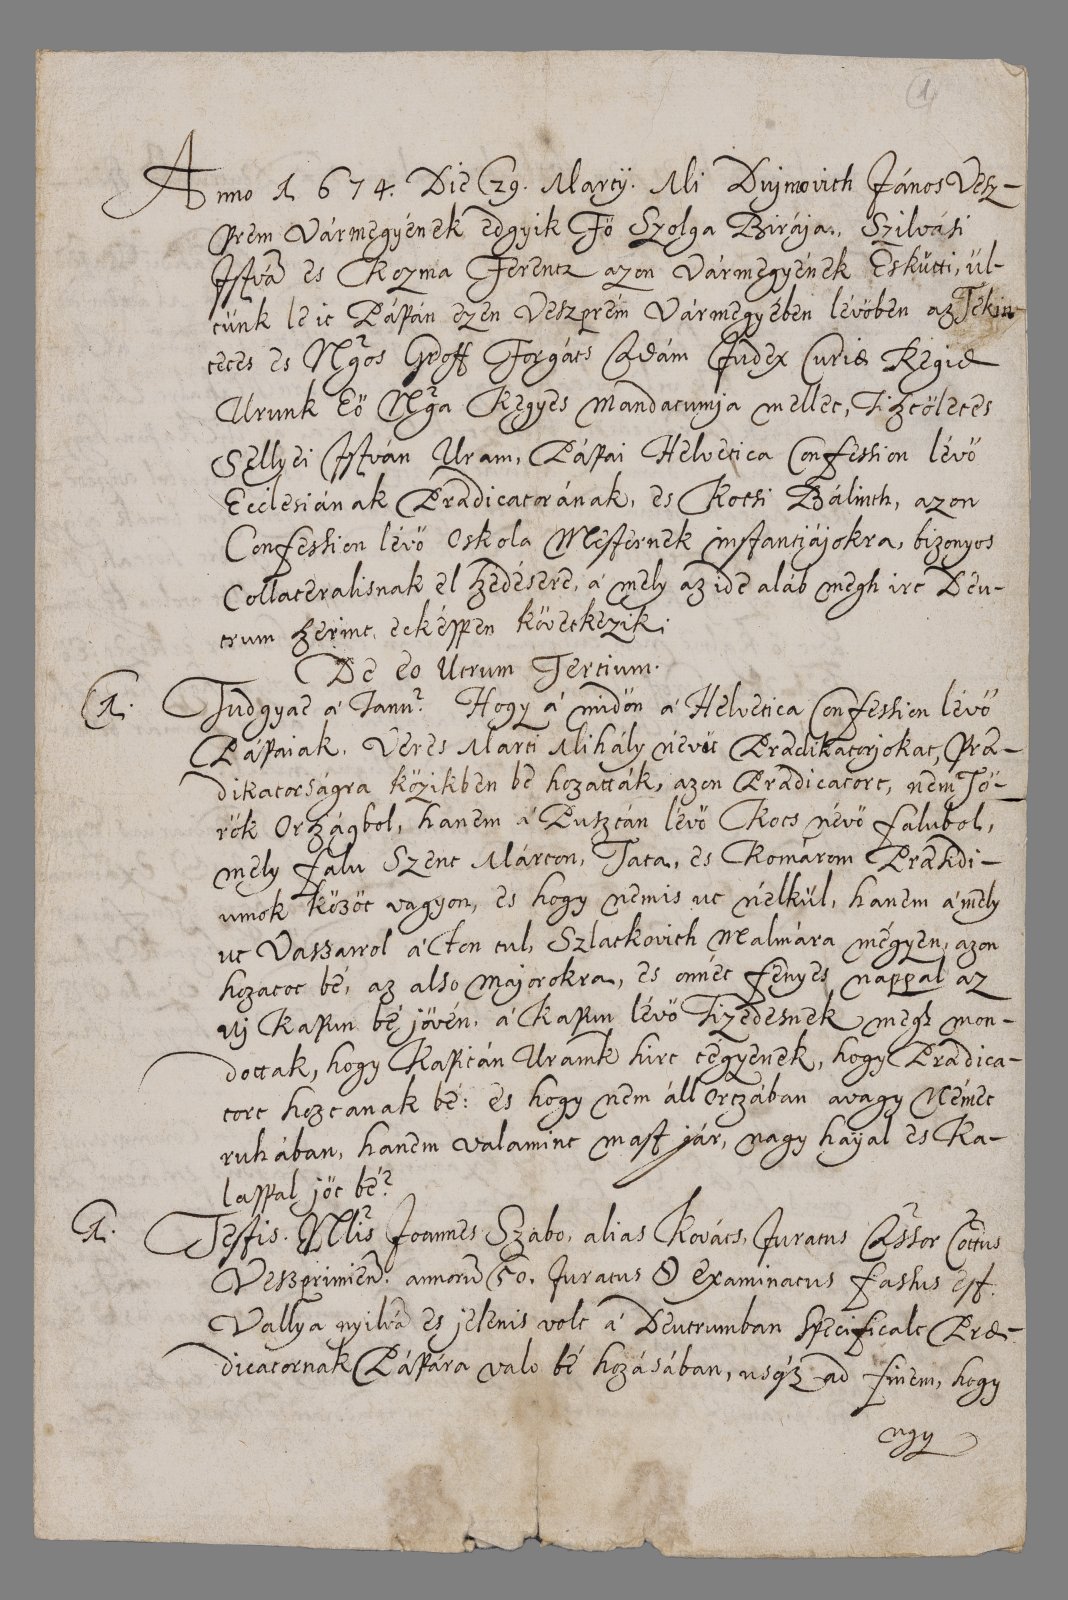 1
Anno 1674. Die 29. Martij. Mi Dujmovith János Vesz-
prem Vármegyének edgyik Fö Szolga Birája, Szilvási
Istvā es Kozma Ferentz azon Vármegyének Eskütti, ül-
tünk le it Pápán ezen Veszprém Vármegyében lévöben az Tekin-
tetes es Ngos Groff Forgáts Adám Judex Curiæ Regiæ
Urunk Eö Nga Kegyes mandatumja mellet, Tisztöletes
Sellyei István Uram, Pápai Helvetica Confession lévö
Ecclesiának Prædicatorának, es Kotsi Bálinth, azon
Confession lévö Oskola Mesternek instantiájokra, bizonyos
Collateralisnak el szedésere, á mely az ide aláb megh irt Deu-
trum szerint, ekképpen következik;
De eo Utrum Tertium.
1. Tudgyae á Tanu? Hogy á midön á Helvetica Confession lévö
Pápaiak, Veres Marti Mihály nevüt Prædikatorjokat, Præ-
dikatorságra közikben be hozatták, azon Prædicatort, nem Tö-
rök Országbol, hanem á Pusztán lévö Kots névö falubol,
mely falu Szent Márton, Tata, es Komárom Præsidi-
umok között vagyon, es hogy nemis ut nélkül, hanem á mely
ut Vassarrol á Ton tul, Szlatkovith Malmára mégyen, azon
hozatot bé, az also majorokra, es onnét fényes nappal az
Uj Kapun bé jövén, á Kapun lévö Tizedesnek megh mon-
dottak, hogy Kapitán Uramk hirt tégyenek, hogy Prædica-
tort hoztanak bé: es hogy nem áll Ortzában avagy Német
ruhában, hanem valamint mast jár, nagy hajjal es Ka-
lappal jöt bé?
1. Testis. Nblis Joannes Szabo, alias Kovács, Juratus Assor Cottus
Veszprimien. annorū 50. Juratus & examinatus fassus est.
Vallya nyilvā es jelenis volt á Deutrumban specificalt Præ-
dicatornak Pápára valo bé hozásában, usq3 ad finem, hogy
ugy